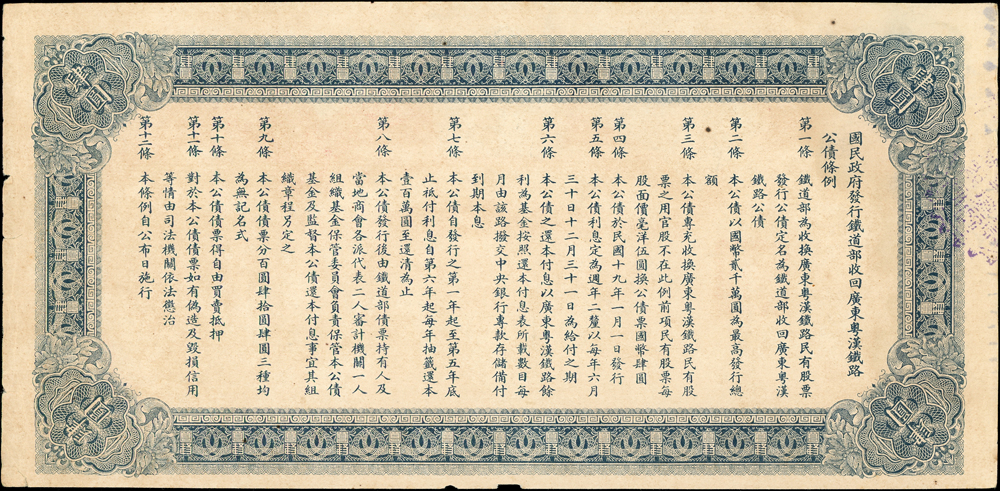 國民政府發行鐵道部收回廣東粵漢鐵路
公債條例
第一條 鐵道部為收換廣東粵漢鐵路民有股票
發行公債定名為鐵道部收回廣東粵漢
鐵路公債
第二條 本公債以國幣貳千萬圓為最高發行總
額
第三條 本公債專充收換廣東粵漢鐵路民有股
票之用官股不在此例前項民有股票每
股面價毫洋伍圓換公債票國幣肆圓
第四條 本公債於民國十九年一月一日發行
第五條 本公債利息定為週年二釐以每年六月
三十日十二月三十一日為給付之期
第六條 本公債之還本付息以廣東粵漢鐵路餘
利為基金按照還本付息表所載數目每
月由該路撥交中央銀行專款存儲備付
到期本息
第七條 本公債自發行之第一年起至第五年底
止祗付利息自第六年起每年抽籤還本
壹百萬圓至還清為止
第八條 本公債發行後由鐵道部債票持有人及
當地商會各派代表二人審計機關一人
組織基金保管委員會負責保管本公債
基金及監督本公債還本付息事宜其組
織章程另定之
第九條 本公債債票分百圓肆拾圓肆圓三種均
為無記名式
第十條 本公債債票得自由買賣抵押
第十一條 對於本公債債票如有偽造及毀損信用
等情由司法機關依法懲治
第十二條 本條例自公布日施行
肆圓
肆圓
肆圓
肆圓